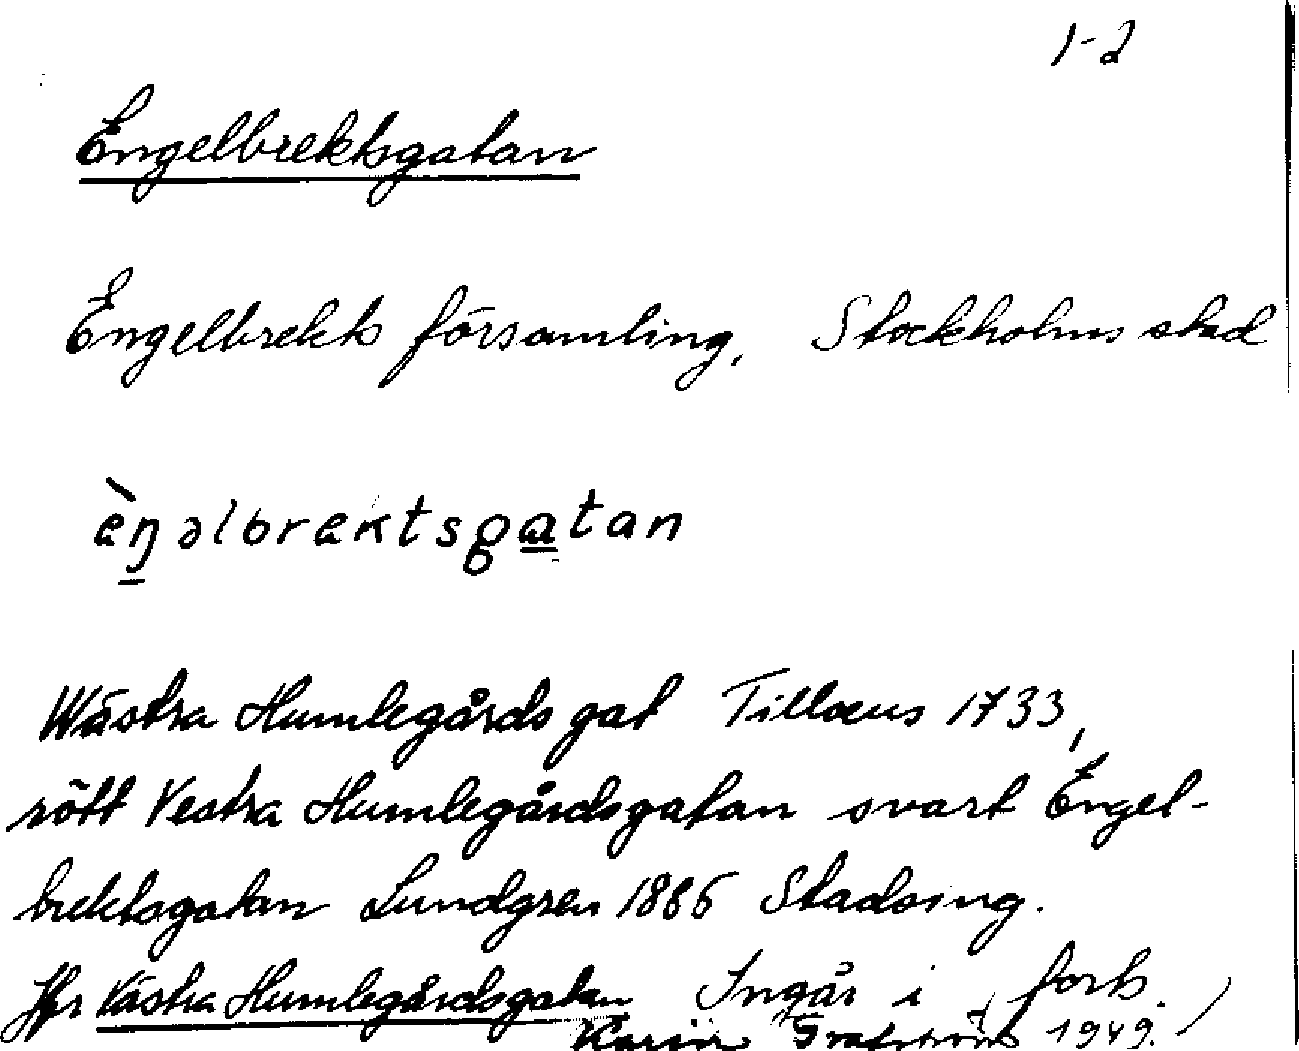 1-2
Engelbrektsgatan
Engelbrekts församling, Stockholms stad
èŋəlbrektsgatan
Wästra Humlegårds gat Tillæus 1733,
rött Vestra Humlegårdsgatan svart Engel-
brektsgatan Lundgren 1886 Stadsing.
Jfr Västra Humlegårdsgatan Ingår i forts.)
Karin 1949.